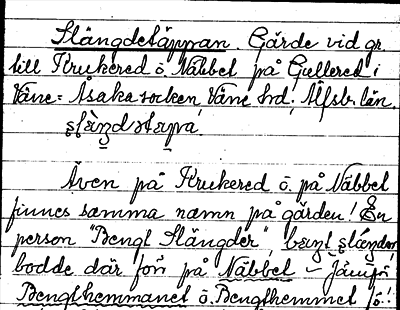 Slängdetäppan. Gärde vid gr.
till Krukered o. Näbbet på Gullered i
Väne-Åsaka socken, Väne hrd, Älfsb. län.

Även på Krukered o. på Näbbet
finnes samma namn på gården! En
person "Bengt Slängder",
bodde där förr på Näbbet - Jämför
Bengthemmanet o. Bengthemmet